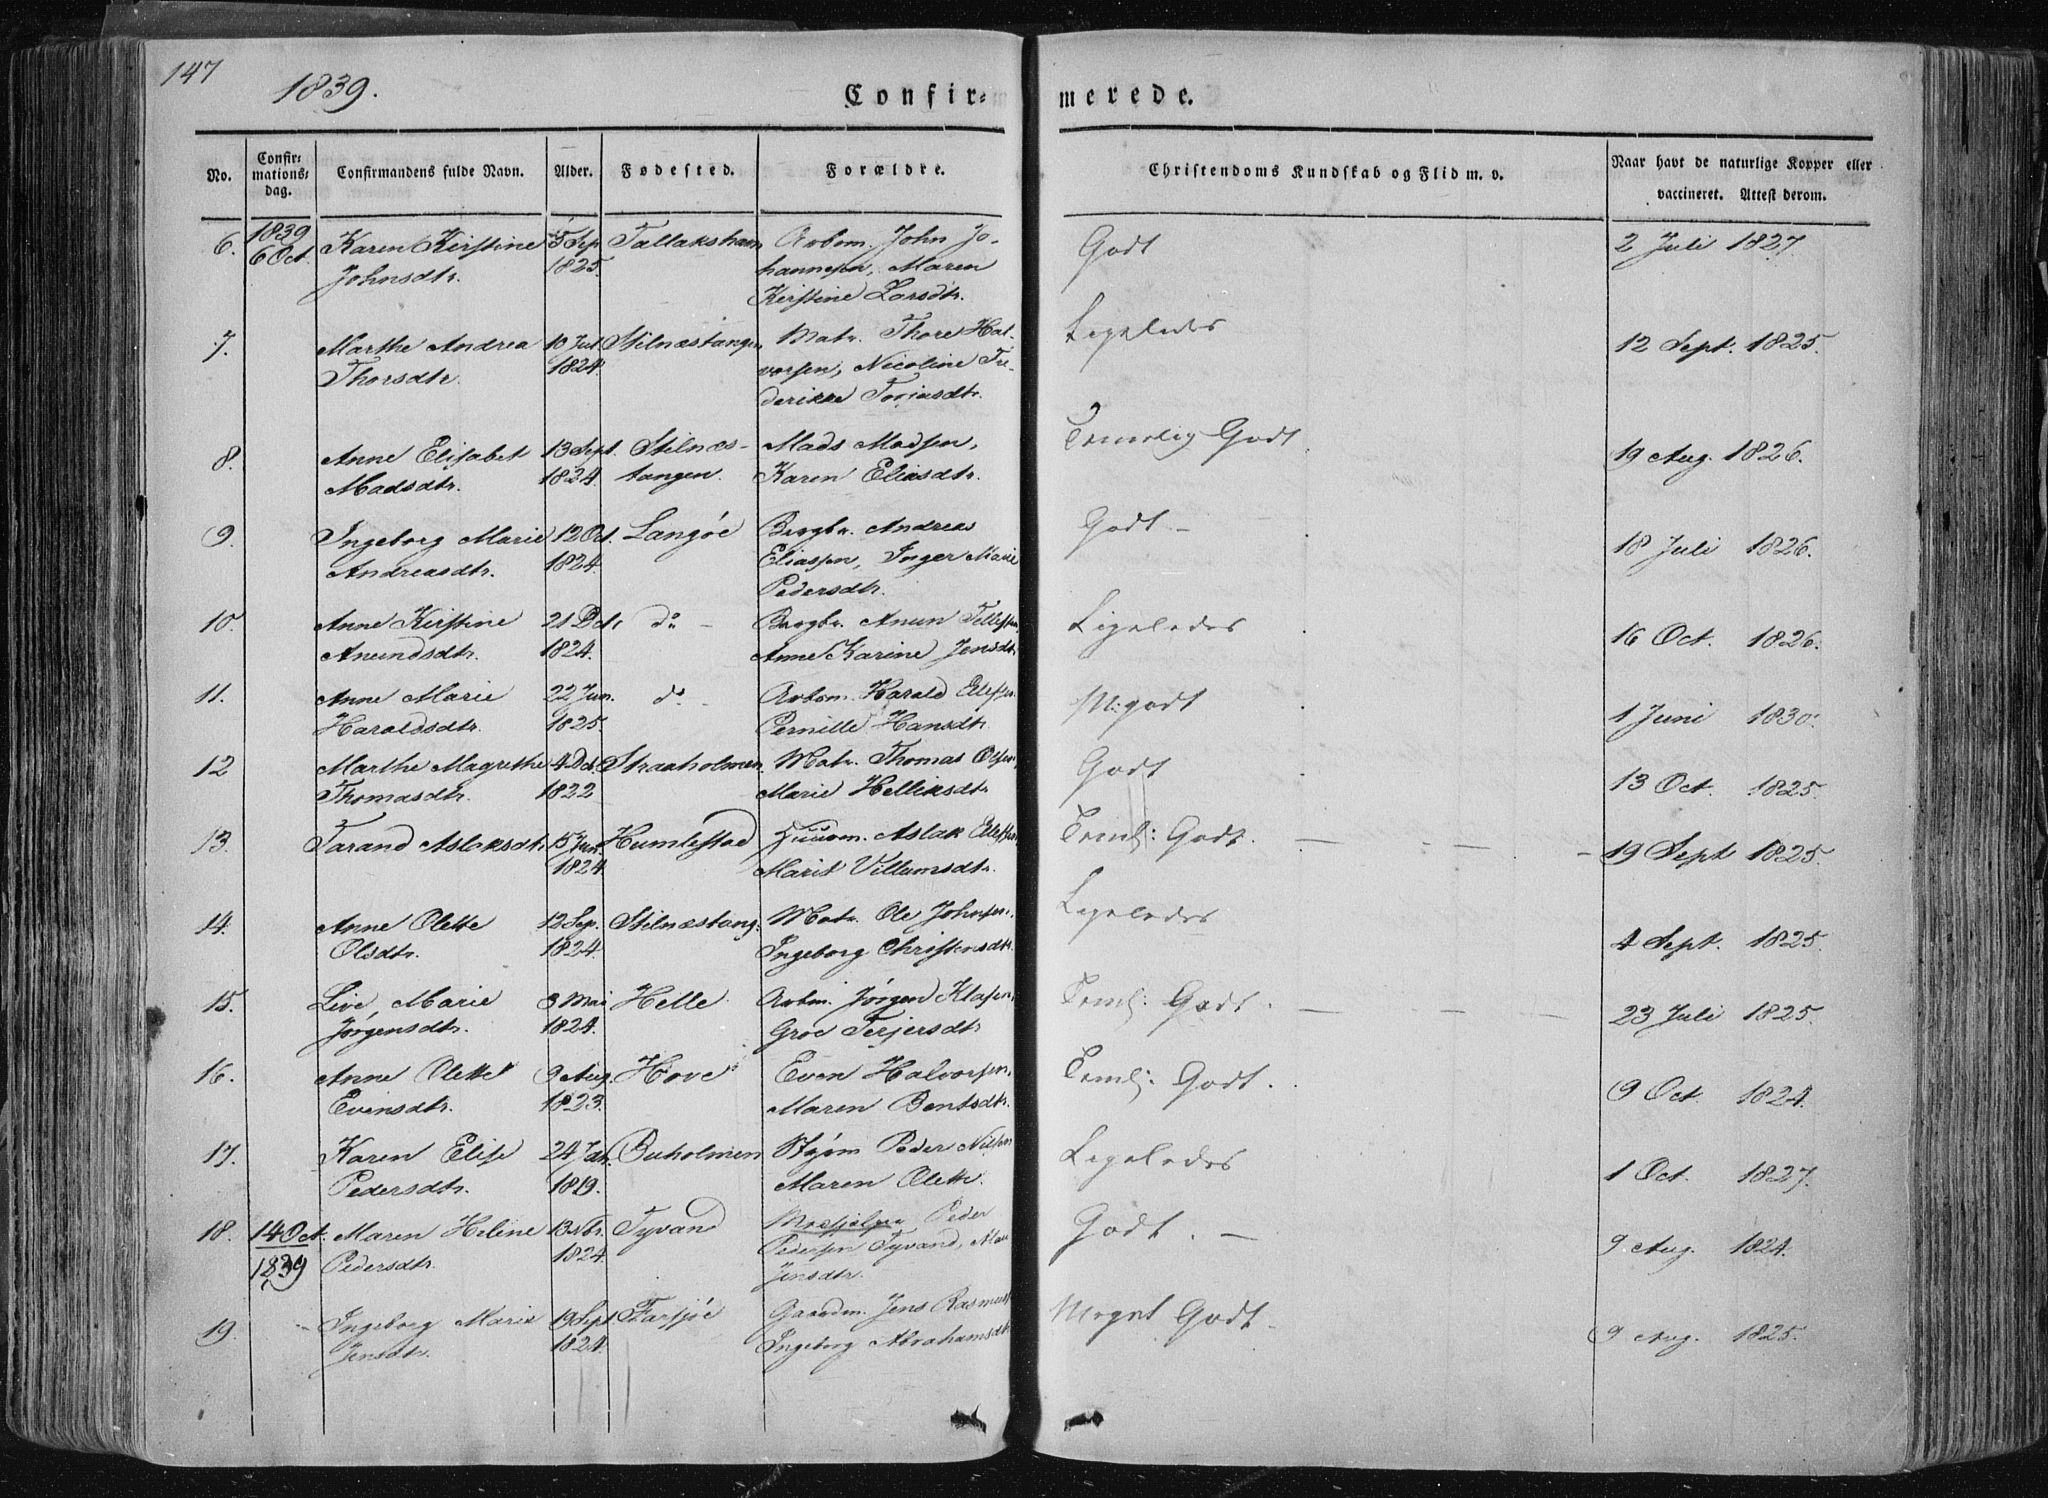 147
1839.
Confir= merede.
No. Confir=mations=dag. Confirmandens fulde Navn. Alder. Fødested. Forældre. Christendoms Kundskab og Flid m. v. Naar havt de naturlige Kopper eller vaccineret. Attest derom.
6. 1839 Karen Kirstine 5 Sep Tallakshavn Arbm. John Jo- Godt 2 Juli 1827.
6 Oct. Johnsdtr. 1825. hannesen, Maren
Kirstine Larsdtr.
7. Marthe Andrea 10 Jul Stilnæstangen Matr. Thore Hal- Ligeledes 12 Sept. 1825.
Thorsdtr. 1824. vorsen, Nicoline Fre-
derikke Toriasdtr.
8. Anne Elisabet 13 Sept. Stilnæs- Mads Madsen, Temelig Godt 19 Aug. 1826.
Madsdtr. 1824. tangen. Karen Eliasdtr.
9. Ingeborg Marie 12 Oct. Langøe Bergbr. Andreas Godt - 18 Juli 1826.
Andreasdtr. 1824. Eliassen, Inger Marie
Pedersdtr.
10. Anne Kirstine 21 do - Bergbr. Anun Tellefsen Ligeledes 16 Oct. 1826.
Anundsdtr. 1824. Anne Karine Jensdtr
11. Anne Marie 22 Jun. do - Arbm. Harald M: godt 1 Juni 1830.
Haraldsdtr. 1825. Pernille Hansdtr.
12 Marthe Magrethe 4 Straaholmen. Matr. Thomas Olsen, Godt 13 Oct. 1825.
Thomasdtr. 1822 Marie Helliksdtr
13. Tarand Aslaksdtr. 15 Jun. Humlestad Huusm. Aslak Teml: Godt. 19 Sept 1825.
1824. Marit Villumsdtr.
14. Anne Olette 12 Sep. Stilnæstang: Matr. Ole Johnsen, Ligeledes 4 Sept. 1825.
Olsdtr. 1824. Ingeborg Christensdtr.
15. Live Marie 3 Mai Helle Arbm. Jørgen Klasen, Teml: Godt. 23 Juli 1825.
Jørgensdtr. 1824. Groe Terjersdtr
16. Anne Olette 9 Aug. Hove Even Halvorsen, Teml: Godt. 9 Oct. 1824.
Evensdtr. 1823. Maren Bentsdtr.
17. Karen Elise 24 Buholmen Peder Nilsen Ligeledes 1 Oct. 1827.
Pedersdtr. 1819. Maren Olette.
18. 14 Oct. Maren Heline 13 Tyvand Peder Godt. - 9. Aug. 1824.
1839 Pedersdtr. 1824. Pedersen Tyvand,
Jensdtr.
19. Ingeborg Marie 19 Sept Farsjøe Gaardm. Jens Rasmuss Meget Godt. 9 Aug. 1825.
Jensdtr. 1824. Ingeborg Abrahamsdtr